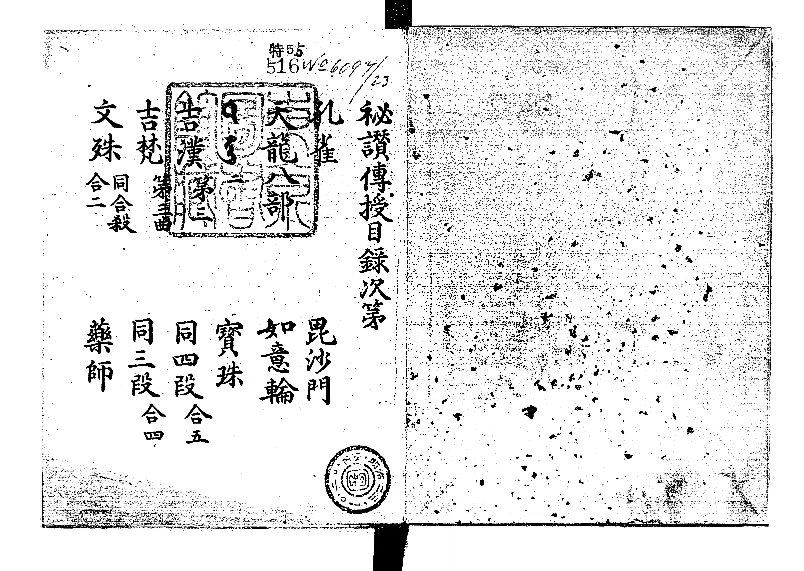 特55
516
秘讃傳授目錄次第
孔雀
毘沙門
天龍八部
如意輪
寶珠
吉漢 第三
同四段 合五
吉梵 第三曲
同三段 合四
文殊 同合殺 合二
藥師